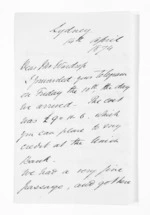 Sydney
14th April
1874
My dear Sir
I received your Telegram
on Friday the 10th the day
we arrived. The cost
was £9..0.6. which
you can place to my
credit at the Union
Bank.
We had a very fine
passage, and got here